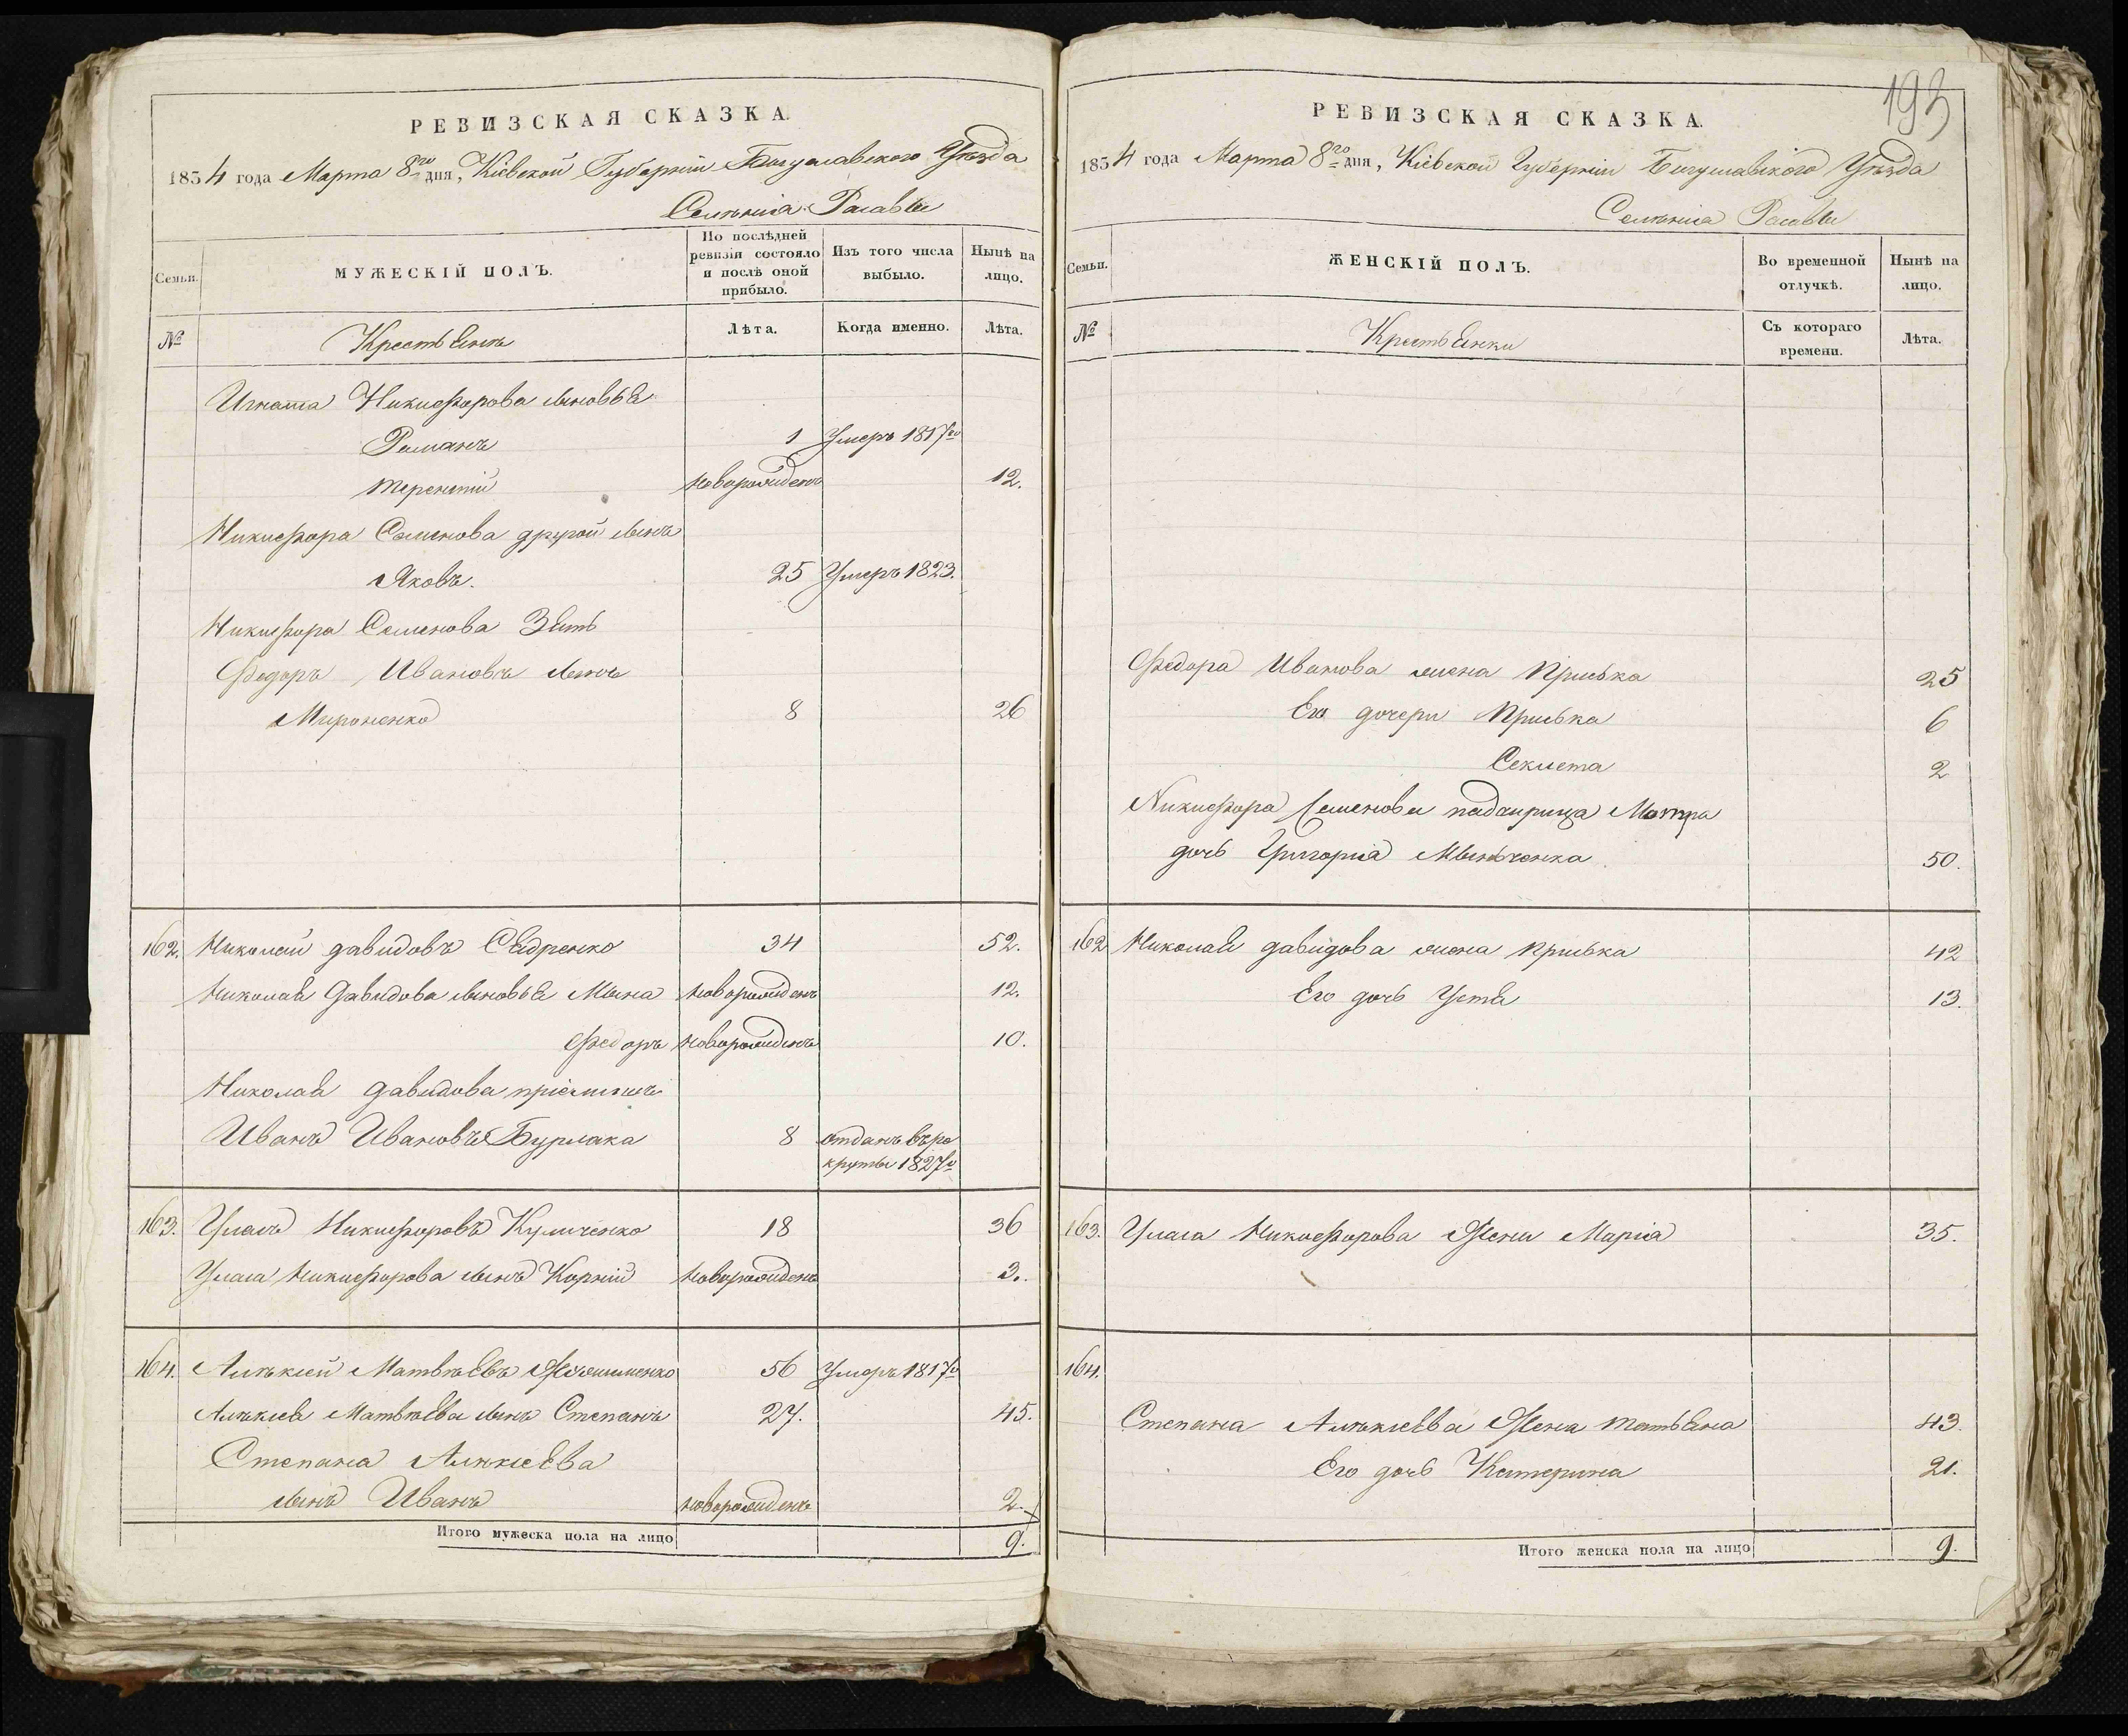 РЕВИЗСКАЯ СКАЗКА.
1834 года Марта 8го дня, Кіевской Губерніи Богуславского Уѣзда
Селенія Расавы
Семьи.
МУЖЕСКІЙ ПОЛЪ.
По послѣдней ревизіи состояло и послѣ оной прибыло.
Изъ того числа выбыло.
Нынѣ на лицо.
№
Крестьяне
Лѣта.
Когда именно.
Лѣта.
Игната Никифорова сыновья
Романъ 1 Умеръ 1817го
Терентій новорожденъ 12.
Никифора Семенова другой сынъ
Яковъ. 25 Умеръ 1823.
Никифора Семенова Зять
Федоръ Ивановъ сынъ
Мироненко 8 26
162. Николай Давидовъ Сядренко 34 52.
Николая Давидова сыновья Мина новорожденъ 12.
Федоръ новорожденъ 10.
Николая Давидова пріемышъ
Иванъ Ивановъ Бурлака 8 отданъ въ ре
круты 1827го
163. Уласъ Никифоровъ Куличенко 18 36
Уласа Никифорова сынъ Корній новорожденъ 3.
164. Алексѣй Матвѣевъ 56 Умеръ 1817го
Алексѣя Матвѣева сынъ Степанъ 27. 45.
Степана Алексѣева
сынъ Иванъ новорожденъ 2.
Итого мужеска пола на лицо 9.
193
РЕВИЗСКАЯ СКАЗКА.
1834 года Марта 8го дня, Кіевской Губерніи Богуславского Уѣзда
Селенія Расавы
Семьи.
ЖЕНСКІЙ ПОЛЪ.
Во временной отлучкѣ.
Нынѣ на лицо.
№
Крестьянки
Съ котораго времени.
Лѣта.
Федора Иванова жена Приська 25
Его дочери Приська 6
Секлета 2
Никифора Семенова падчирица Мотря
дочь Григорія 50.
162 Николая Давидова жена Приська 42
Его дочь Устя 13.
163. Уласа Никифорова Жена Марія 35.
164.
Степана Алексѣева Жена Татьяна 43.
Его дочь Катерина 21.
Итого женска пола на лицо 9.